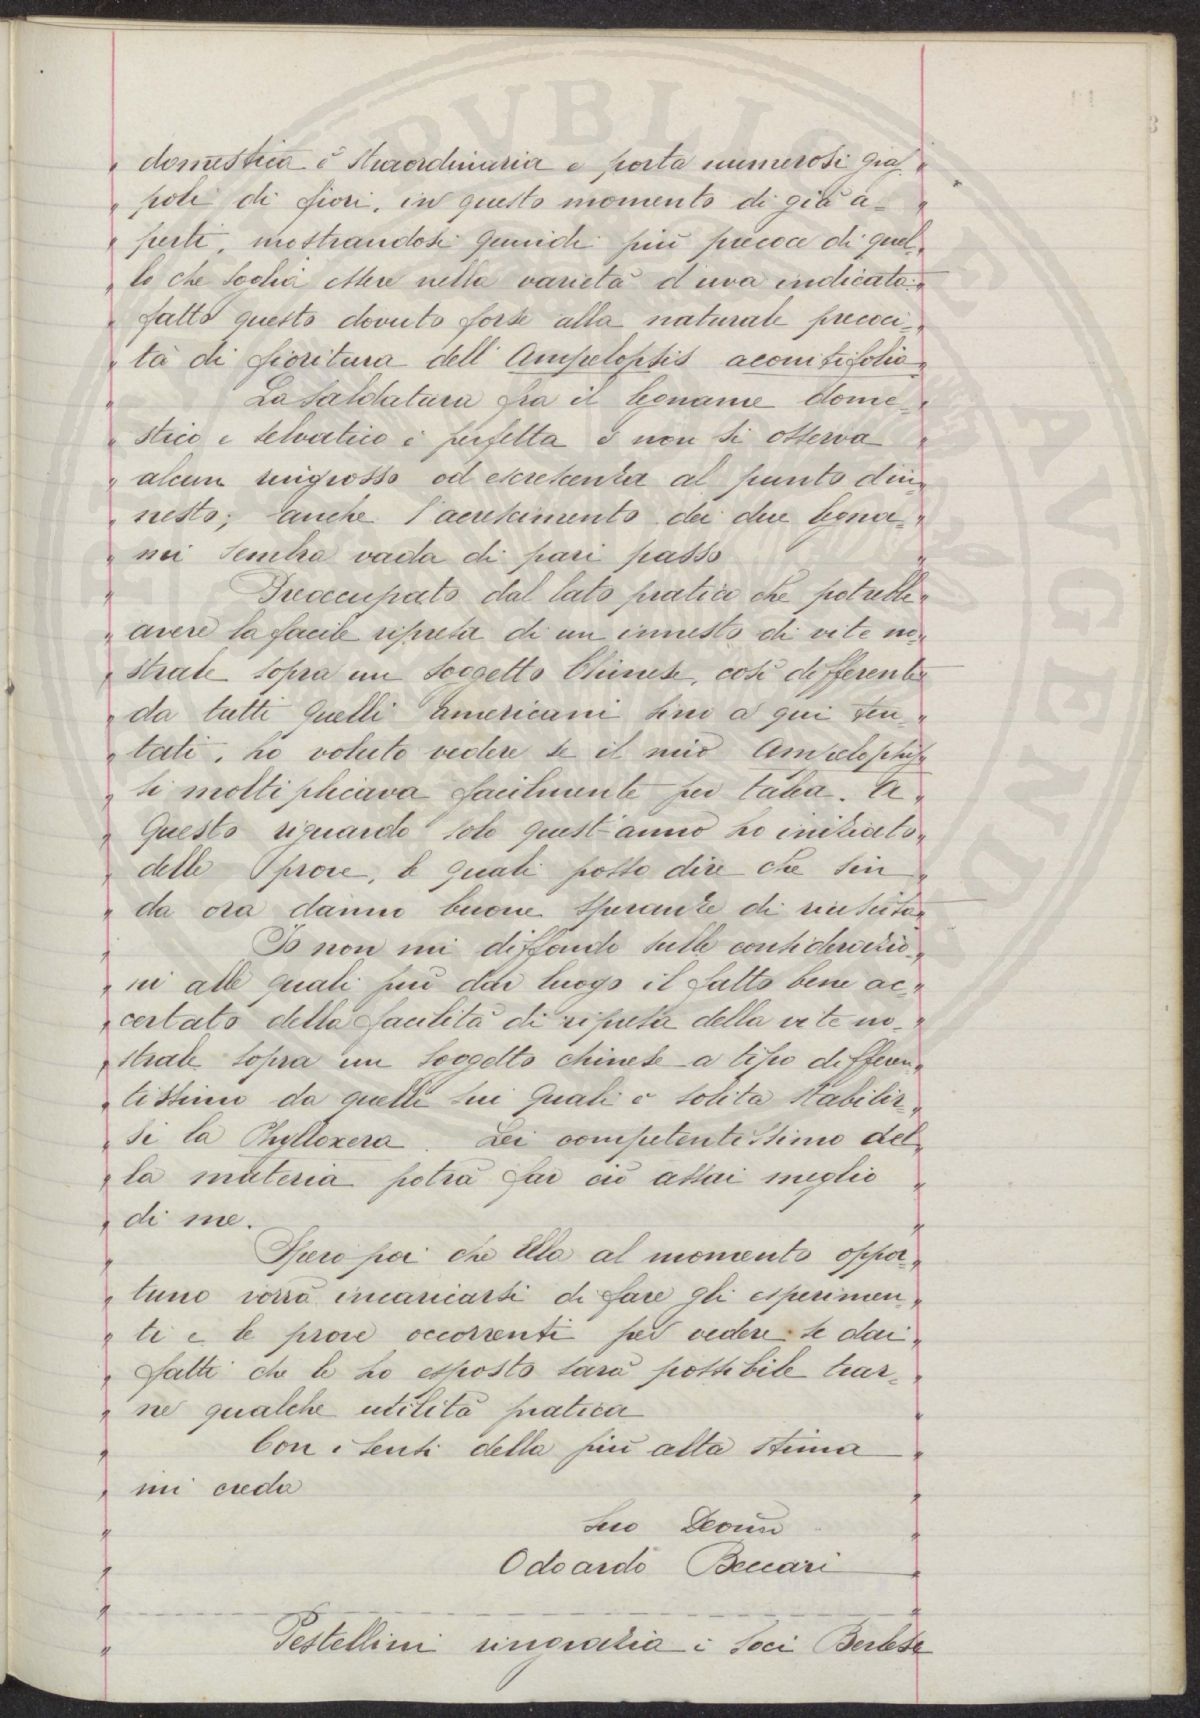 domestica è straordinaria e porta numerosi grap-
poli di fiori, in questo momento di già a-
perti, mostrandosi quindi più precoce di quel-
lo che soglia essere nella varietà d'uva indicata:
fatto questo dovuto forse alla naturale precoci-
tà di fioritura dell'Ampelopsis aconitifolia
La saldatura fra il legname dome-
stico e selvatico è perfetta e non si osserva
alcun ringrosso od escrescenza al punto d'in-
nesto; anche l'accrescimento dei due legna-
mi sembra vada di pari passo
Preoccupato dal lato pratico che potrebbe
avere la facile ripresa di un innesto di vite no-
strale sopra un soggetto Chinese, così differente
da tutti quelli americani sino a qui ten-
tati, ho voluto vedere se il mio Ampelopsis
si moltiplicava facilmente per talea. A
questo riguardo solo quest'anno ho iniziato
delle prove, le quali posso dire che sin
da ora danno buone speranze di riuscita
Io non mi diffondo sulle considerazio-
ni alle quali può dar luogo il fatto bene ac-
certato della facilità di ripresa della vite no-
strale sopra un soggetto chinese a tipo differen-
tissimo da quelli sui quali è solita stabilir-
si la Phylloxera. Lei competentissimo del-
la materia potrà far ciò assai meglio
di me.
Spero poi che Ella al momento oppor-
tuno vorrà incaricarsi di fare gli esperimen-
ti e le prove occorrenti per vedere se dai
fatti che le ho esposto sarà possibile trar-
ne qualche utilità pratica
Con i sensi della più alta stima
mi creda
Suo Devmo
Odoardo Beccari
Pestellini ringrazia i Soci Berlese
PVBLICAE
AVGENDAE